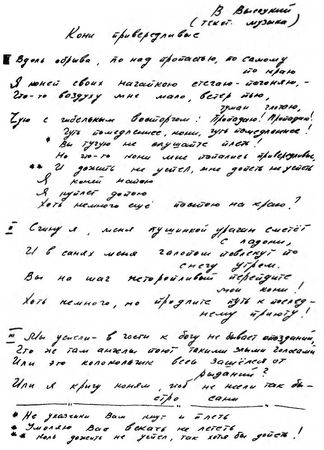 В Высоцкий
(текст, музыка)
Кони привередливые
I Вдоль обрыва, по над пропастью, по самому
по краю
Я коней своих нагайкою стегаю-погоняю,-
Что-то воздуху мне мало, ветер пью,
туман глотаю,
Чую с гибельным восторгом: Пропадаю! Пропадаю!
Чуть помедленнее, кони, чуть помедленнее!
* Вы тугую не слушайте плеть!
Но что-то кони мне попались привередливые,
** И дожить не успел, мне допеть не успеть
Я коней напою
Я куплет допою
Хоть немного ещё постою на краю?
II Сгину я, меня пушинкой ураган сметёт
с ладони,
И в санях меня галопом повлекут по
снегу утром.
Вы на шаг неторопливый перейдите
мои кони!
Хоть немного, но продлите путь к послед-
нему приюту!
III Мы успели - в гости к богу не бывает опозданий,
Что же там ангелы поют такими злыми голосами
Или это колокольчик весь зашёлся от
рыданий?
Или я кричу коням, чтоб не несли так бы-
стро сани
* Не указчики Вам кнут и плеть
* Умоляю Вас вскачь не лететь
** Коль дожить не успел, так хотя бы допеть!